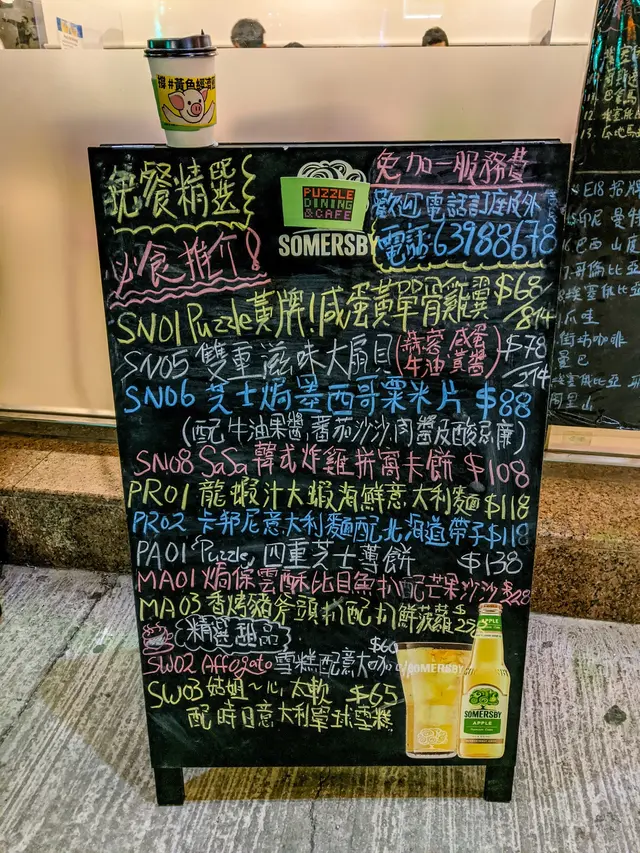 撐#黃色經濟圈
晚餐精選
必食推介!
PUZZLE
DINING
&CAFE
SOMERSBY
免加一服務費
歡迎電話訂座及外賣
電話:63988678
SN01 Puzzle黃牌!咸蛋黃單骨雞翼 $68/8件
SN05 雙重滋味大扇貝(蒜蓉牛油 咸蛋黃醬) $78/2件
SN06 芝士焗墨西哥粟米片 $88
(配牛油果醬,番茄沙沙,肉醬及酸忌廉)
SN08 SaSa韓式炸雞拼窩夫餅 $108
PR01 龍蝦汁大蝦海鮮意大利麵 $118
PR02 卡邦尼意大利麵配北海道帶子 $118
PA01 Puzzle 四重芝士薄餅 $138
MA01 焗
比目魚扒配芒果沙沙 $228
MA03 香烤豬斧頭扒配扒鮮菠蘿
精選甜品
SW02 Affogato 雪糕配意大利咖啡 $60
SW03 姑姐~心太軟 $65
配時日意大利單球雪糕
SOMERSBY
APPLE
SOMERSBY
APPLE
12.
13.
E18
印尼
巴西
哥倫比亞
埃塞俄比亞
爪哇
街坊咖啡
曼巴
埃塞俄比亞
阿里山